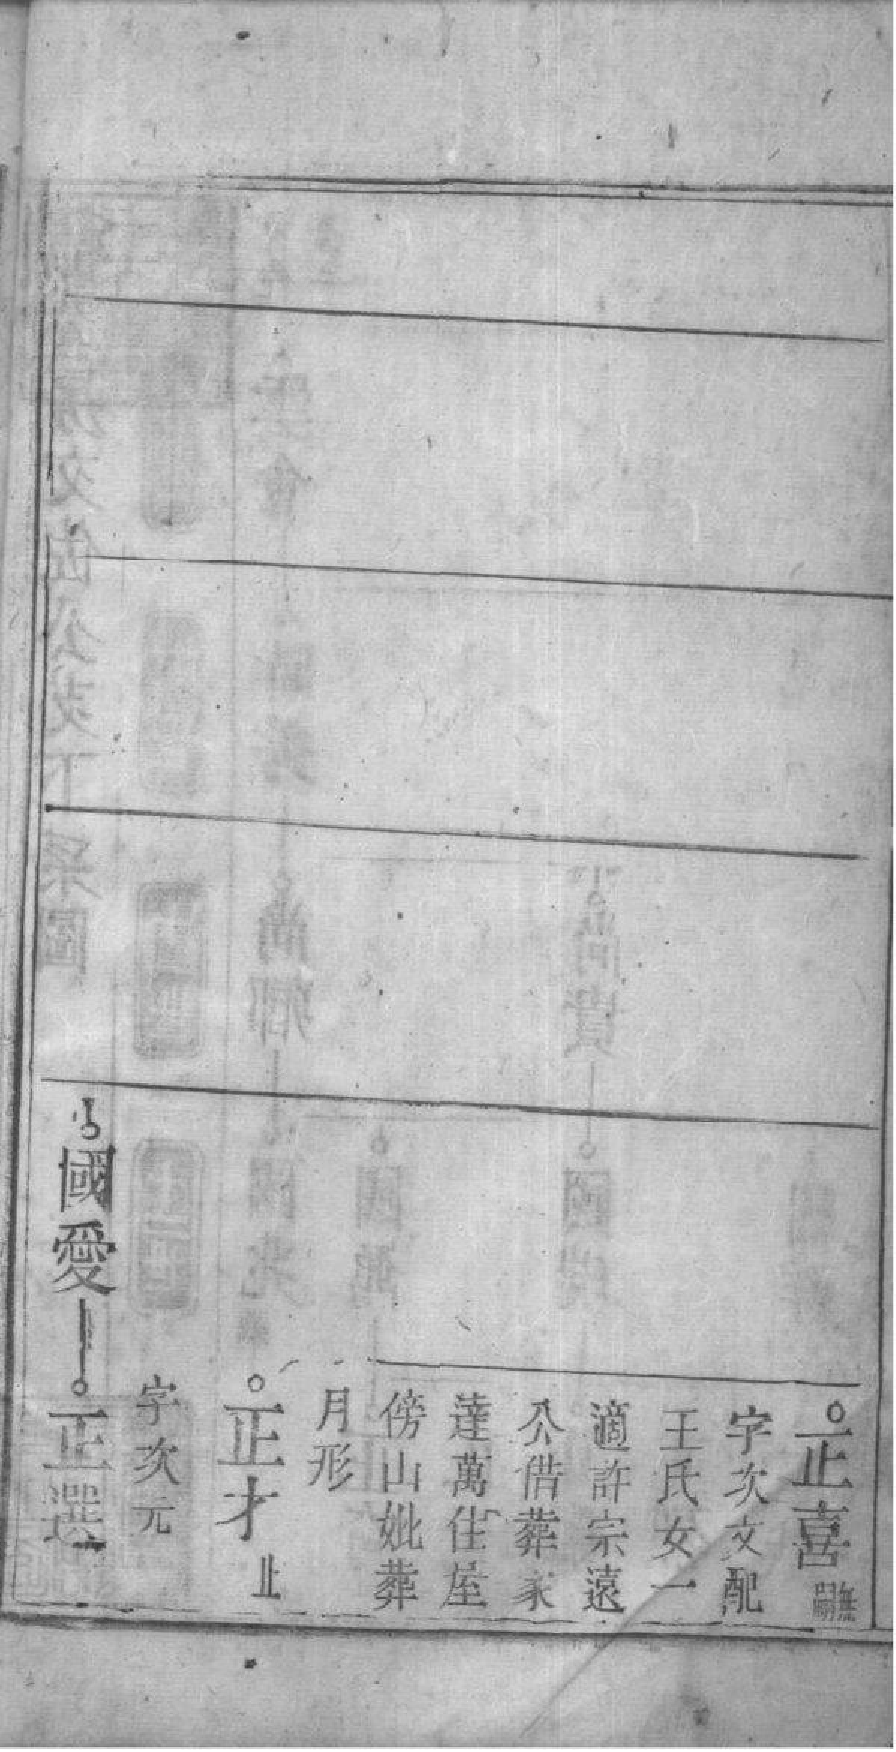 正喜 無嗣
字次文配
王氏女一
適許宗遠
公偕葬家
達萬住屋
傍山妣葬
月形
正才 止
字次元
國愛 正選